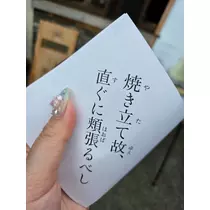 焼き立て故、
直ぐに頬張るべし